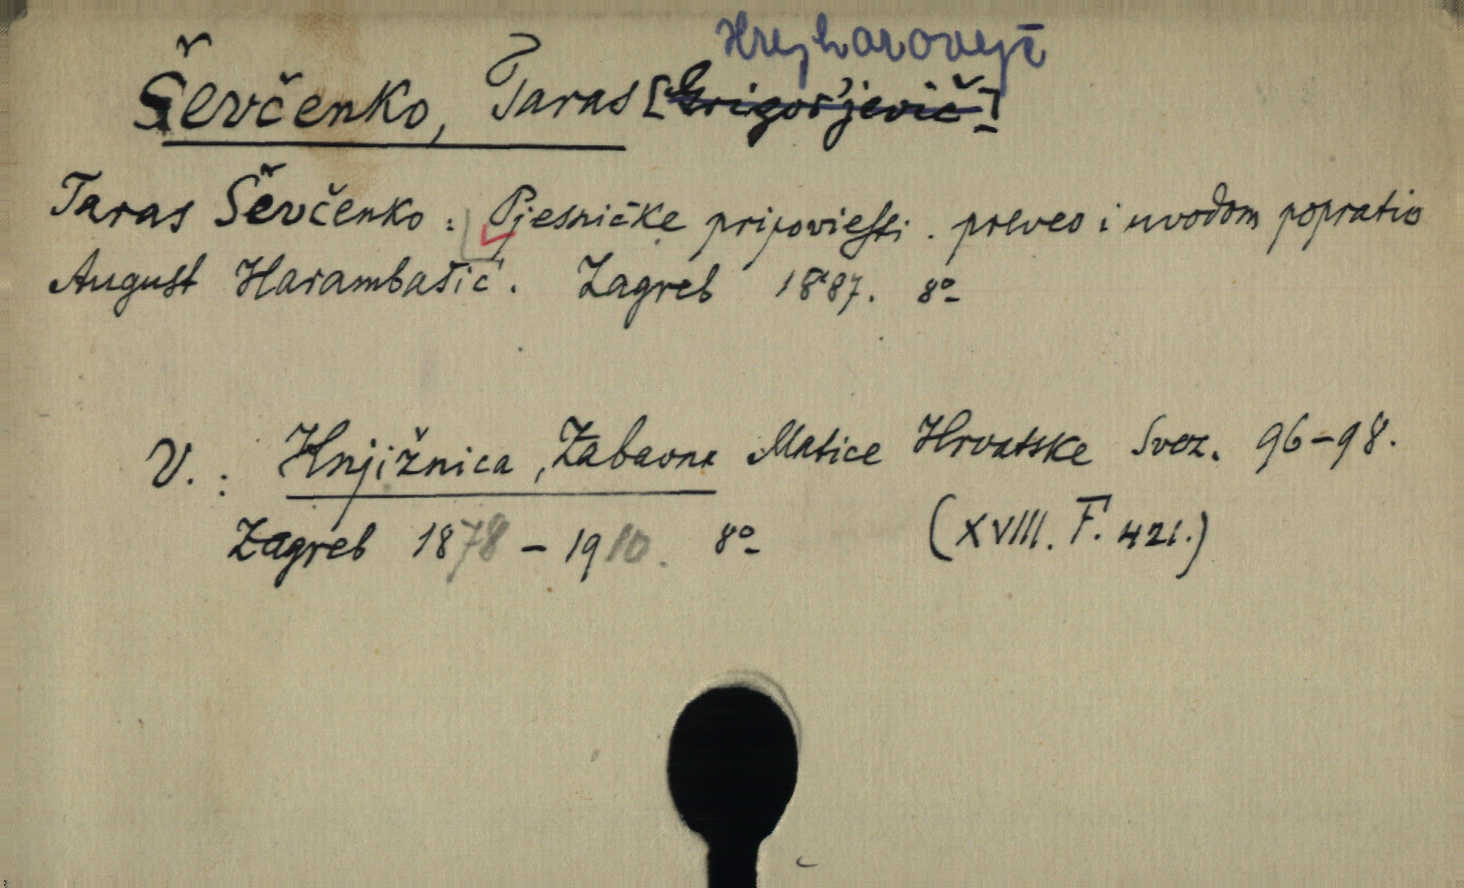 Hryhorovyč
Ševčenko, Taras [Grigor'jevič]
Taras Ševčenko: Pjesničke pripoviesti. preveo i uvodom popratio
August Harambašić. Zagreb 1887. 8º
V.: Knjižnica, Zabavna Matice Hrvatske Svez. 96-98.
Zagreb 1878-1910. 8º (XVIII. F. 421.)